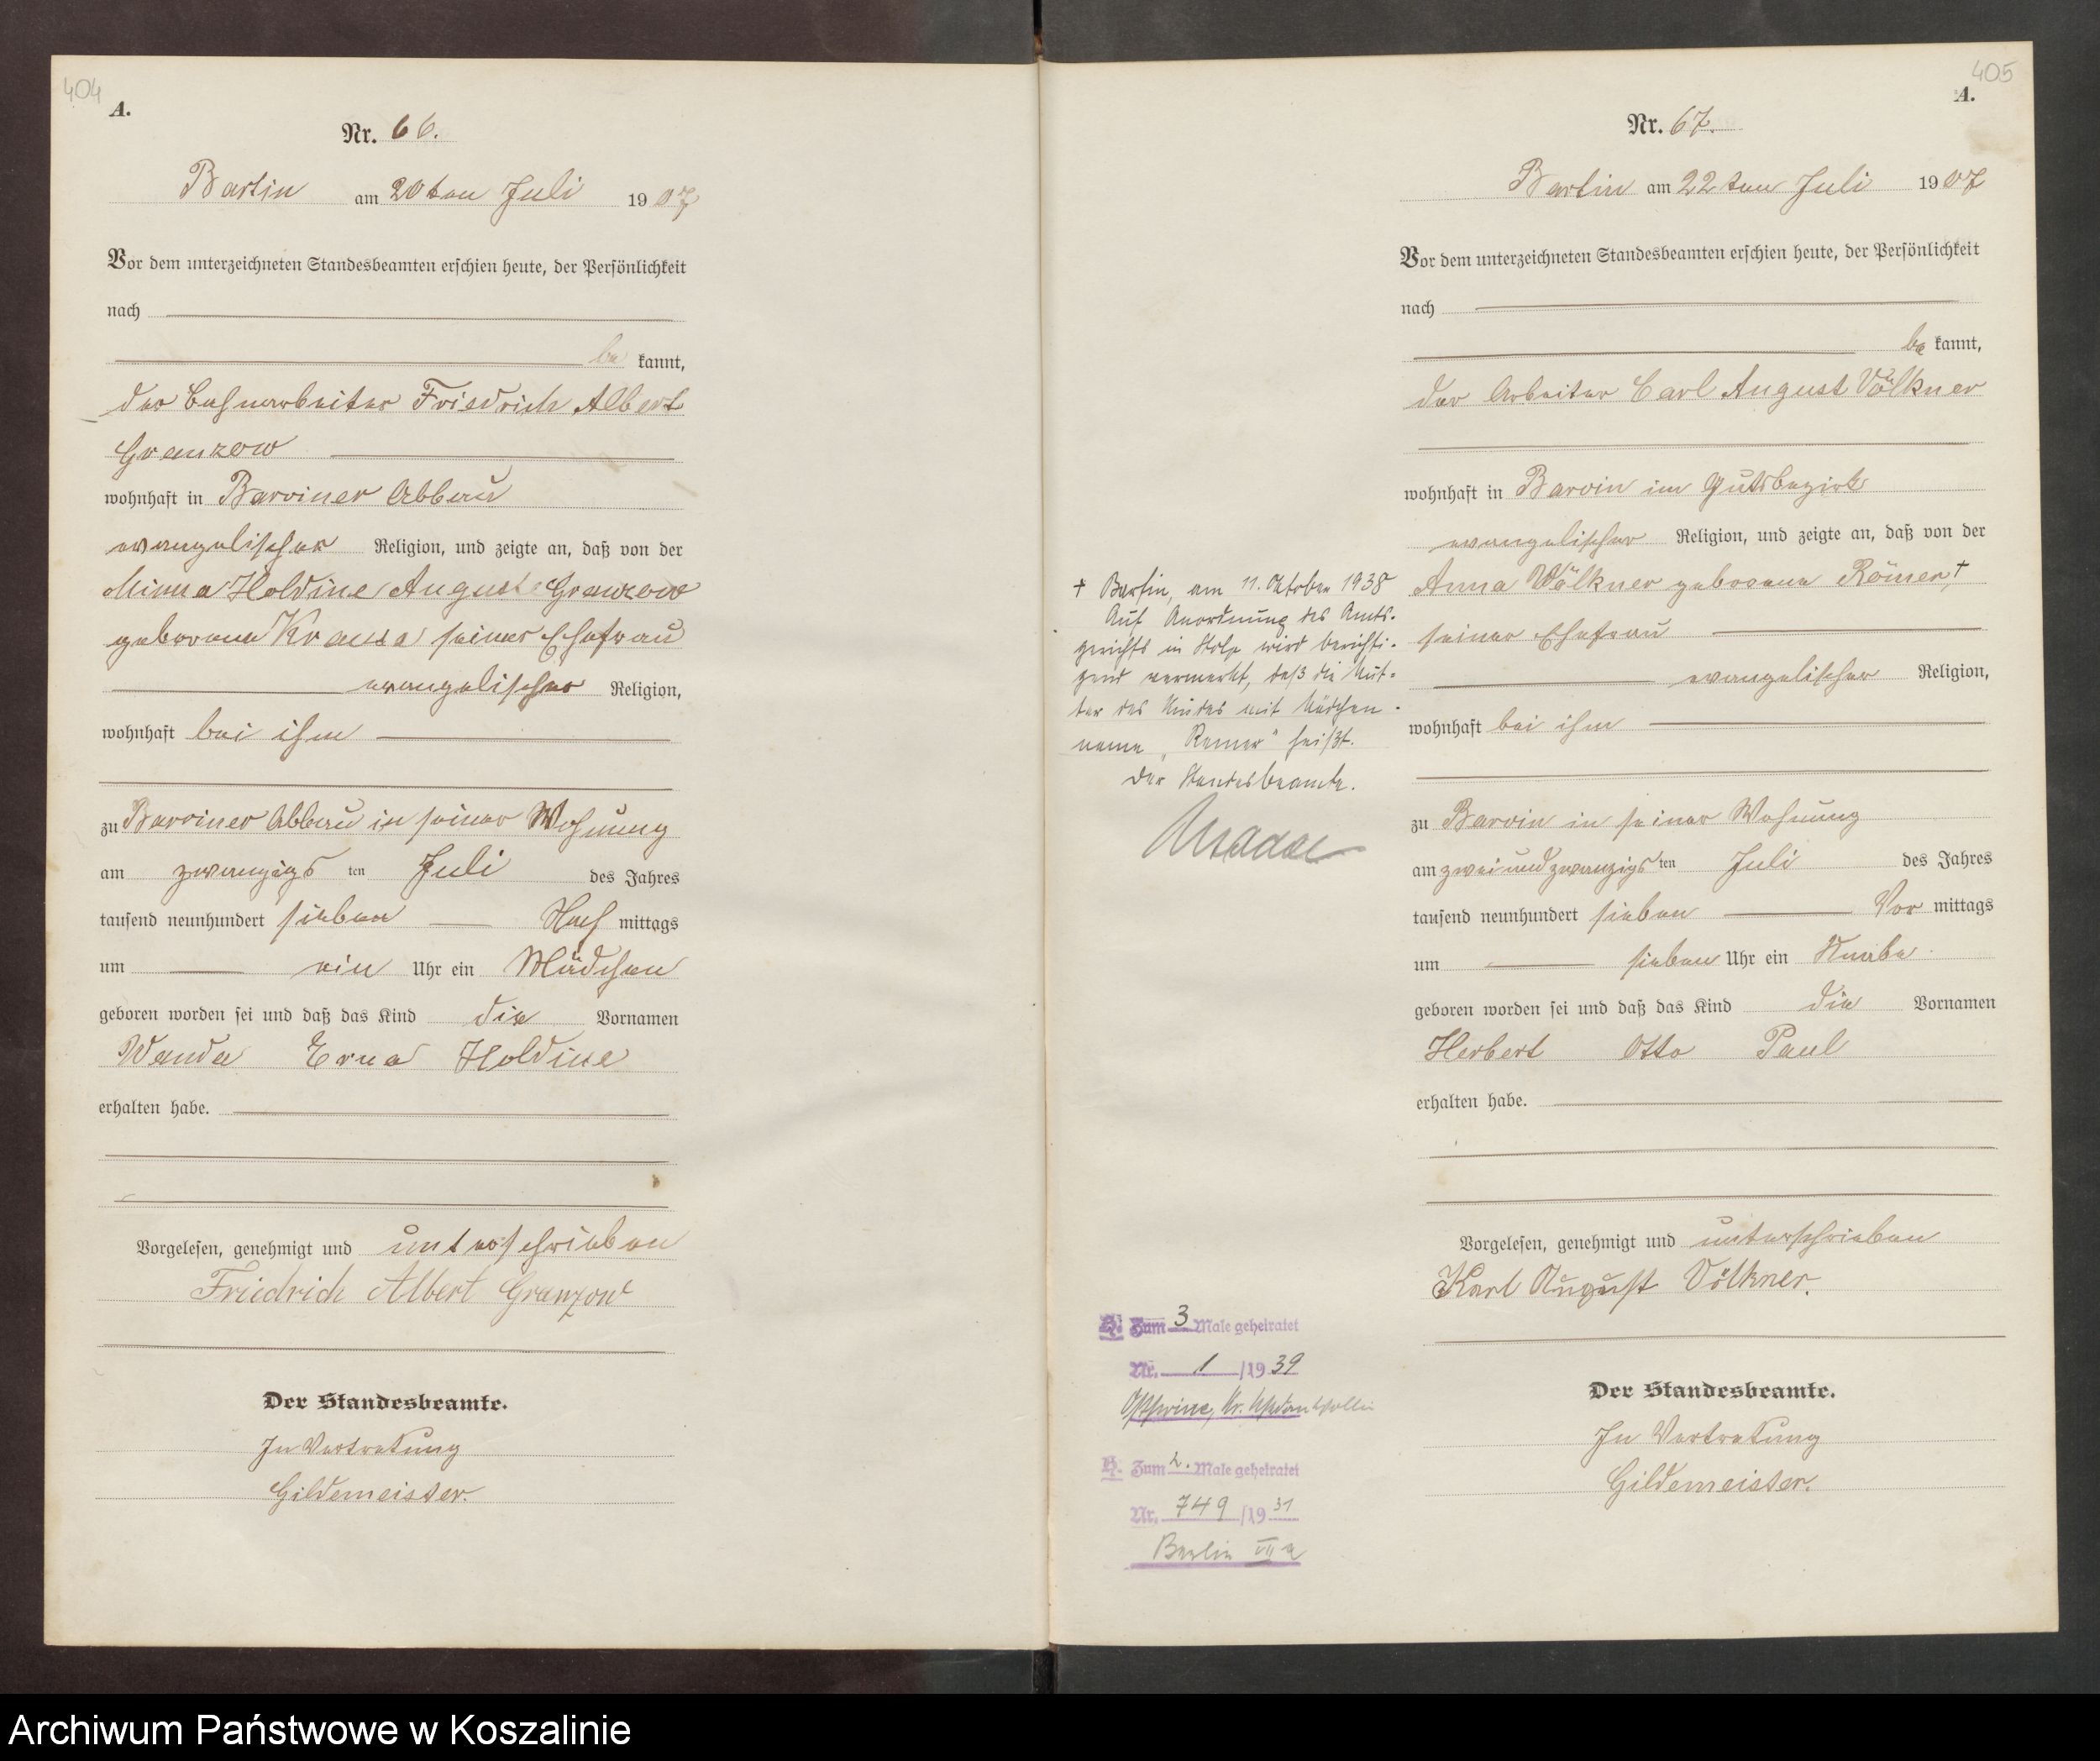 404
A.
Nr. 66.
Bartin am 20ten Juli 1907
Vor dem unterzeichneten Standesbeamten erschien heute, der Persönlichkeit
nach
be kannt,
der Bahnarbeiter Friedrich Albert
Granzow
wohnhaft in Barviner Abbau
evangelischer Religion, und zeigte an, daß von der
Minna Holdine Auguste Granzow
geborene Krause seiner Ehefrau
evangelischer Religion,
wohnhaft bei ihm
zu Barviner Abbau in seiner Wohnung
am zwanzigs ten Juli des Jahres
tausend neunhundert sieben Nach mittags
um ein Uhr ein Mädchen
geboren worden sei und daß das Kind die Vornamen
Wanda Erna Holdine
erhalten habe.
Vorgelesen, genehmigt und unterschrieben
Friedrich Albert Granzow
Der Standesbeamte.
In Vertretung
Gildemeister.
405
A.
Nr. 67.
Bartin am 22ten Juli 1907
Vor dem unterzeichneten Standesbeamten erschien heute, der Persönlichkeit
nach
be kannt,
der Arbeiter Carl August Völkner
wohnhaft in Barvin im Gutsbezirk
evangelischer Religion, und zeigte an, daß von der
Anna Völkner geborene Römer,+
seiner Ehefrau
evangelischer Religion,
wohnhaft bei ihm
zu Barvin in seiner Wohnung
am zweiundzwanzigs ten Juli des Jahres
tausend neunhundert sieben Vor mittags
um sieben Uhr ein Knabe
geboren worden sei und daß das Kind die Vornamen
Herbert Otto Paul
erhalten habe.
Vorgelesen, genehmigt und unterschrieben
Karl August Völkner.
Der Standesbeamte.
In Vertretung
Gildemeister.
+ Bartin, am 11. Oktober 1938
Auf Anordnung des Amts-
gerichts in Stolp wird berichti-
gend vermerkt, daß die Mut-
ter des Kindes mit Mädchen-
name "Remer" heißt.
Der Standesbeamte.
Zum 3 Male geheiratet
Nr. 1 /1939
Ostswine, Kr. Usedom Wollin
Zum 2. Male geheiratet
Nr. 749 /1931
Berlin VII a
Archiwum Państwowe w Koszalinie